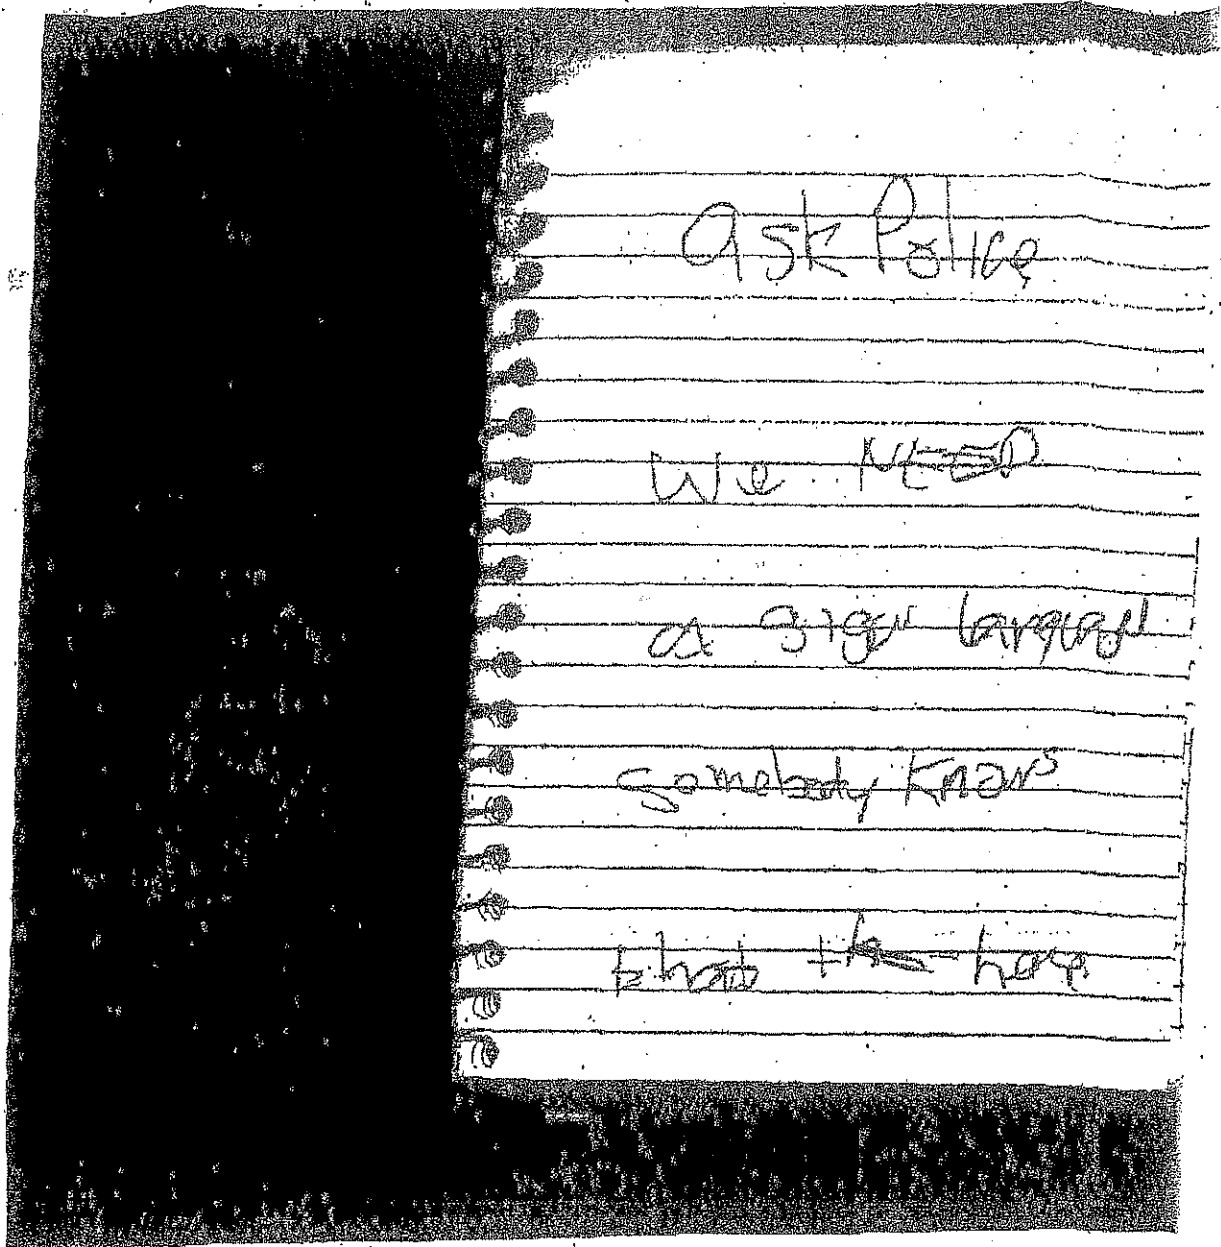 Ask Police
We NEED
a sign language
somebody knows
that the here